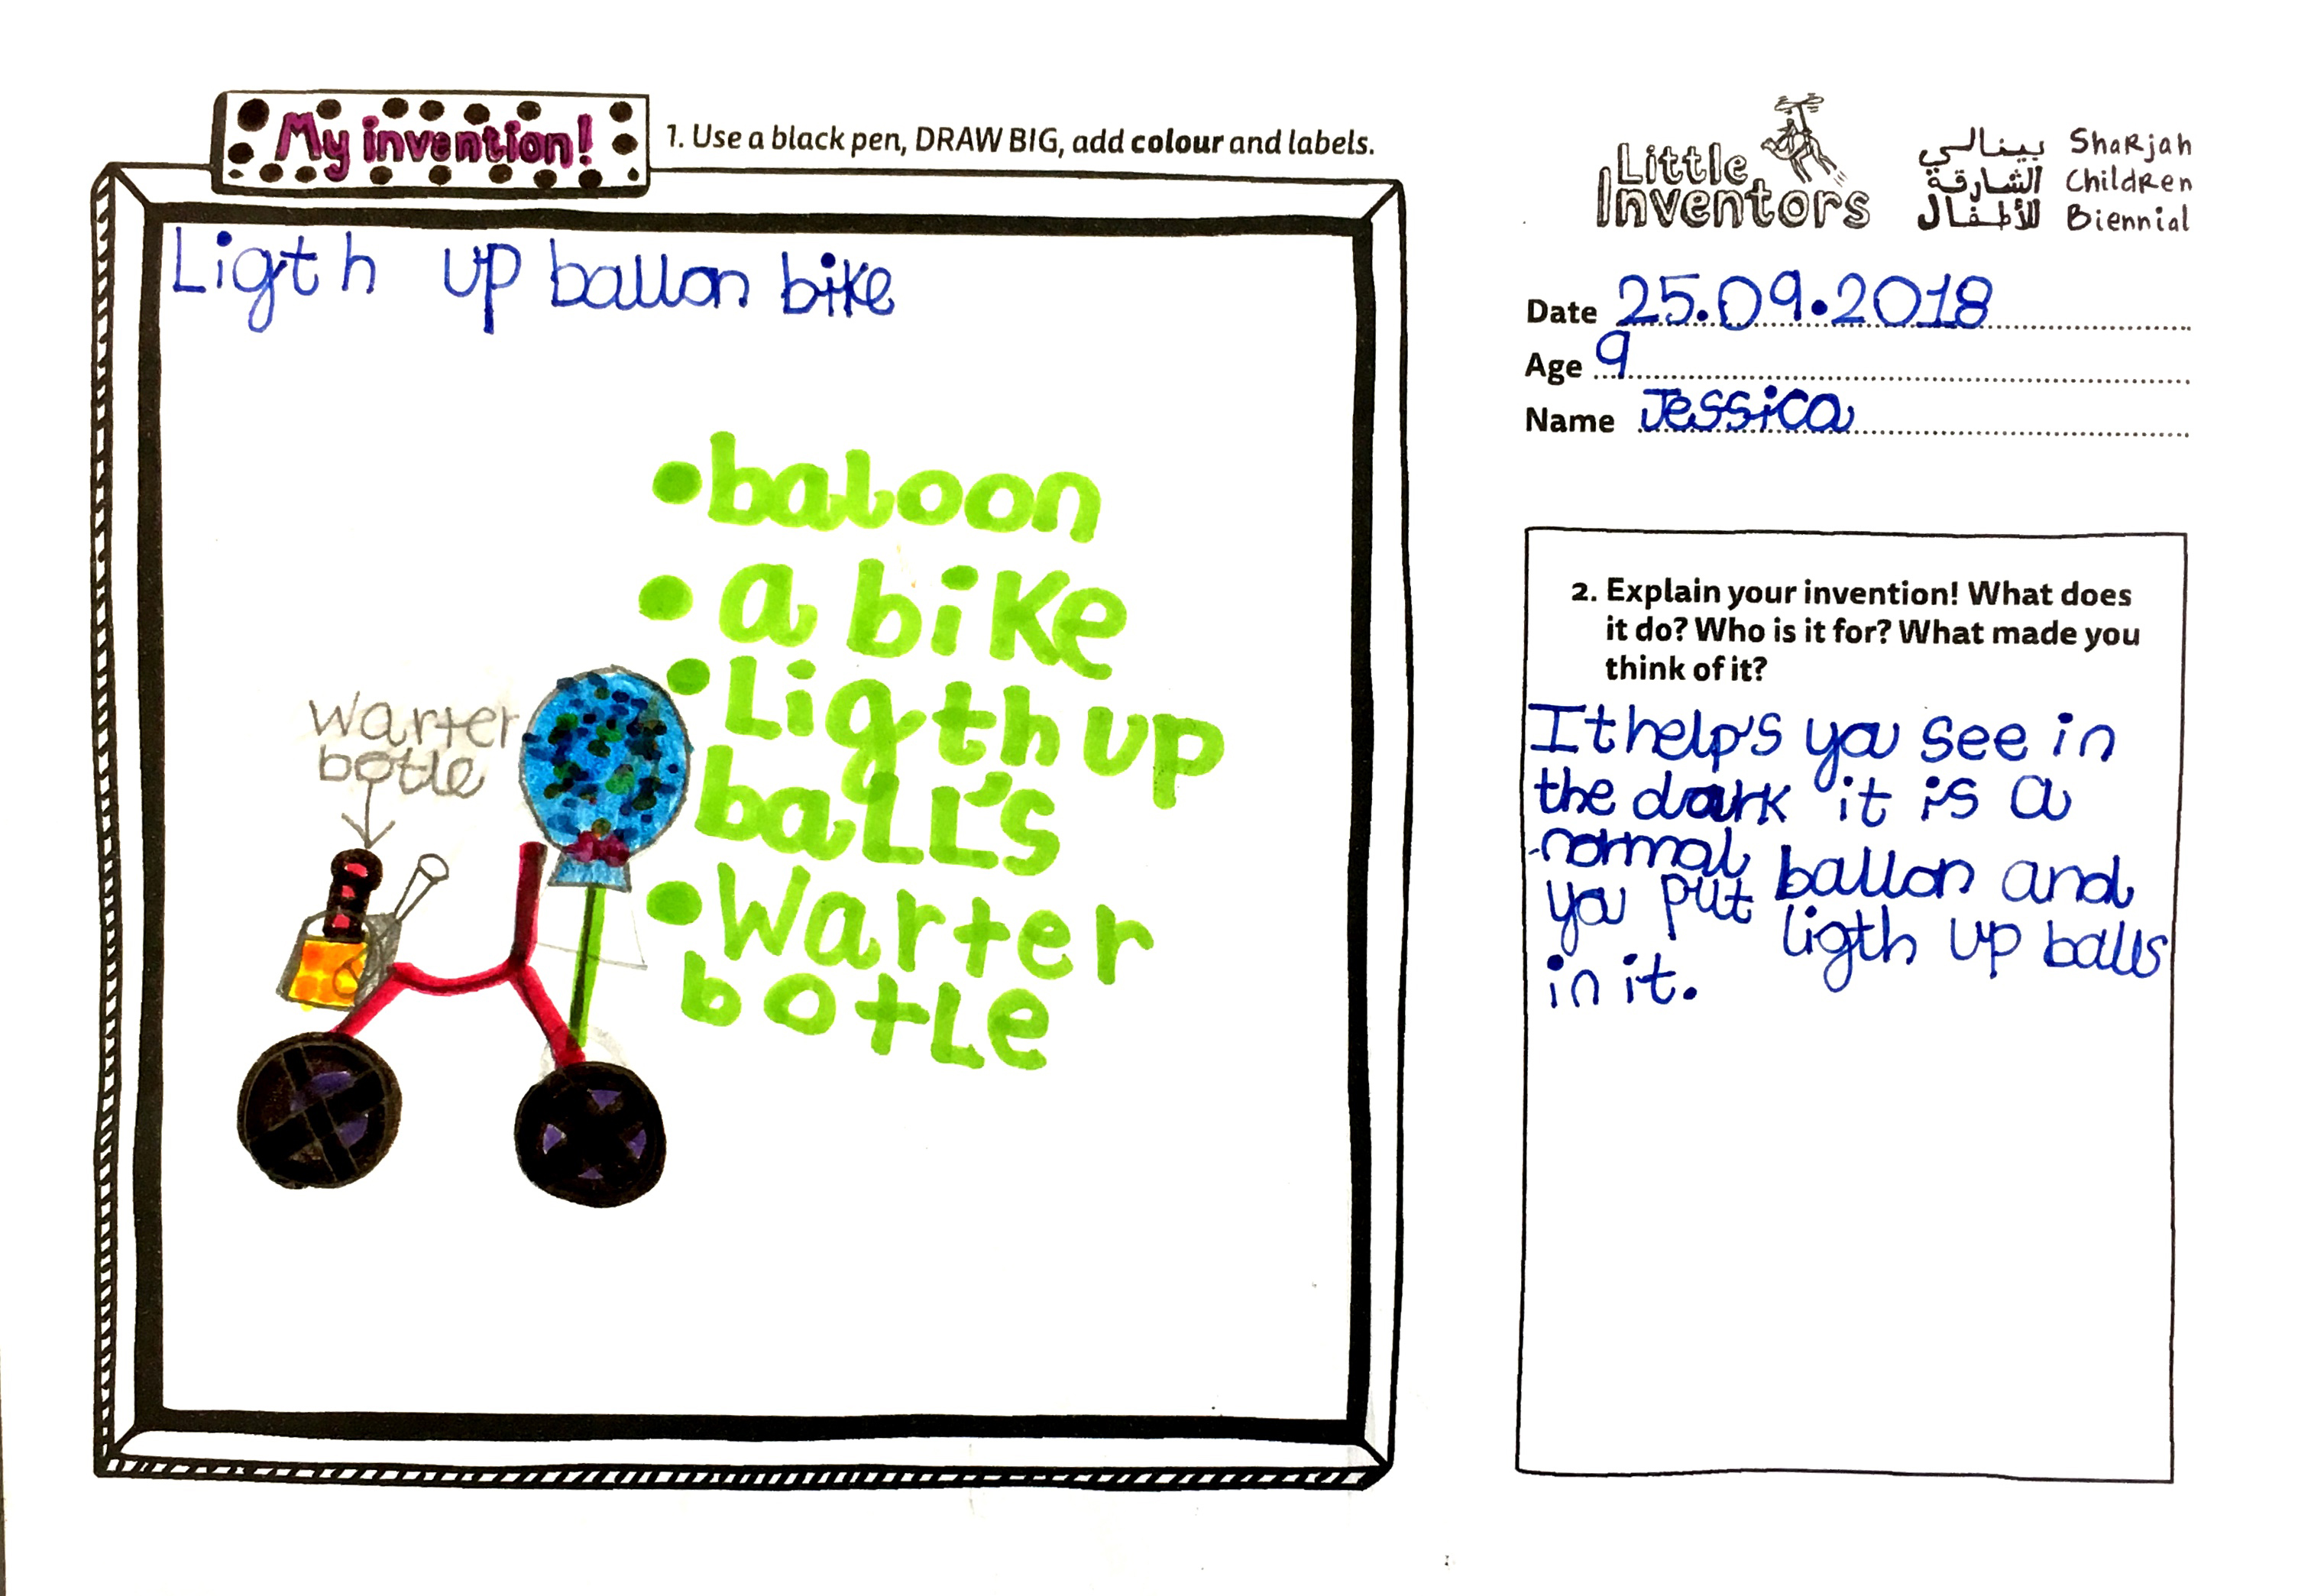 My invention!
1. Use a black pen, DRAW BIG, add colour and labels.
Ligth up ballon bike
•baloon
• a bike
•Ligth up
ball's
•Warter
botle
warter
botle
Little
Inventors
بينالي
الشارقة
للأطفال
Sharjah
Children
Biennial
Date 25.09.2018
Age 9
Name Jessica
2. Explain your invention! What does
it do? Who is it for? What made you
think of it?
It help's you see in
the dark it is a
normal ballon and
you put ligth up balls
in it.